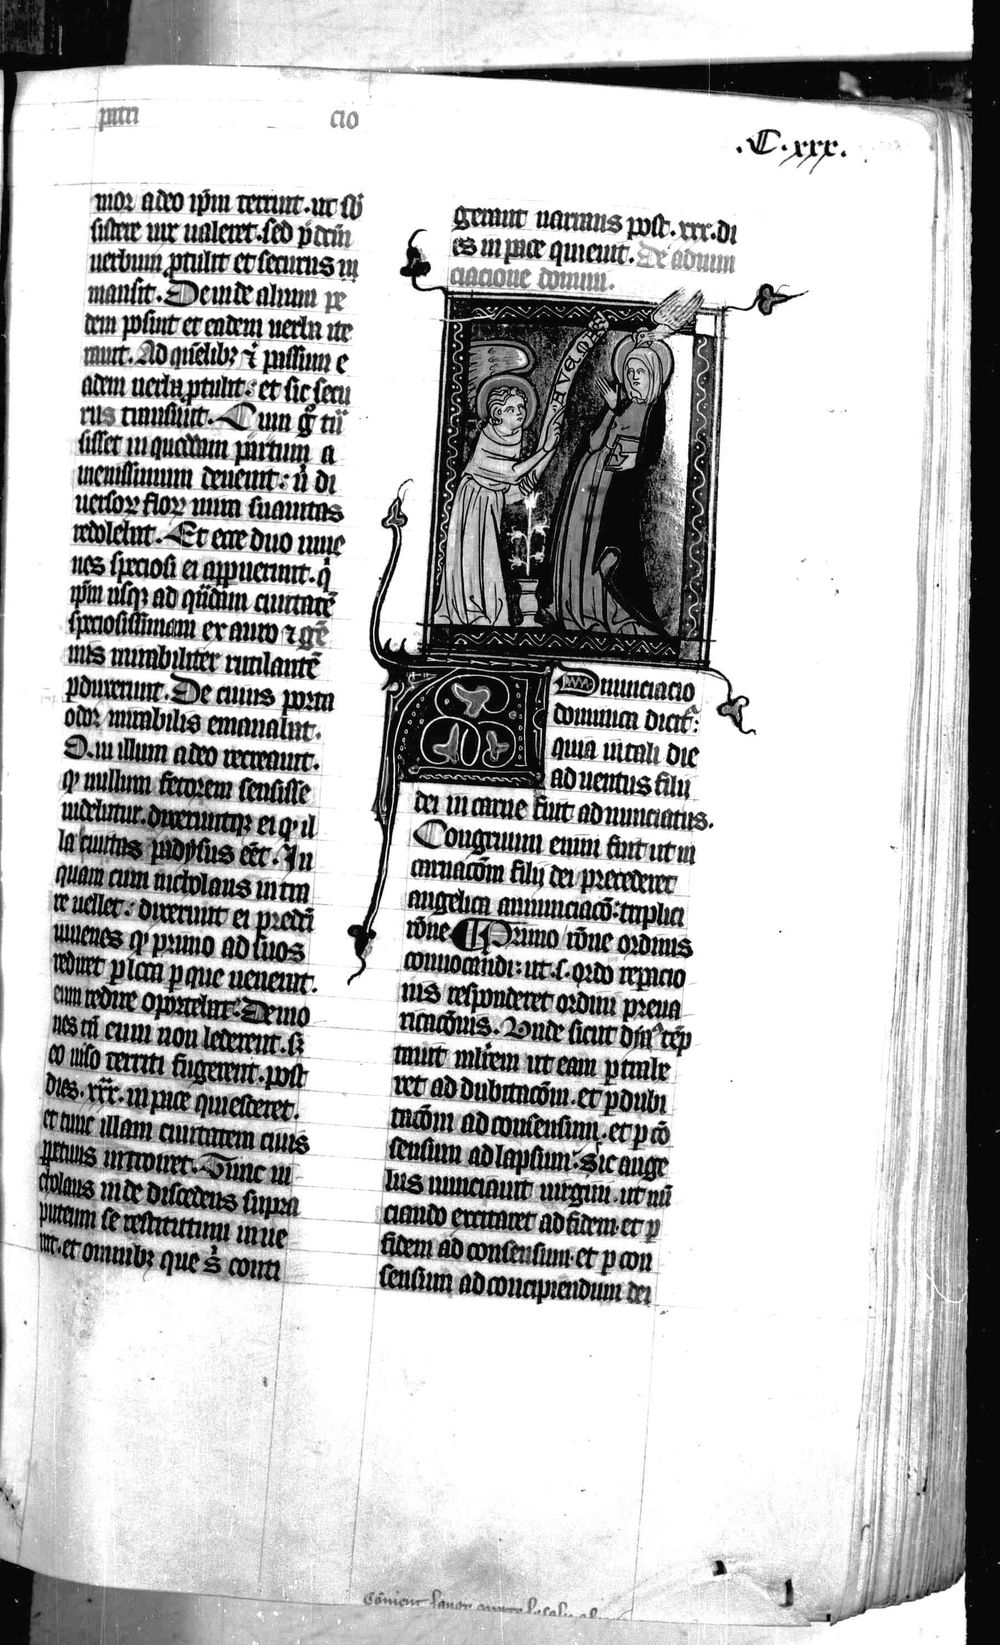 patri cio
.C.xxx.
mor adeo ip̄m terruit. ut sb̄
sistere uix ualeret. sed p̄dc̄m
uerbum ꝓtulit et securus in
mansit. Deinde alium pe
dem posuit et eadem uerba ite
rauit. Ad quēlibꝫ ⁊ passum e
adem uerba ꝓtulit. et sic secu
rus transiuit. Cum g̊ tn̄
sisset in quoddam pratum a
menissimum deuenit. u̇ di
uersoꝝ floꝝ mira suauitas
redolebat. Et ecce duo iuue
nes speciosi ei apparuerunt. q̇
ip̄m usqꝫ ad qn̄dam ciuitatē
speciosissimam ex auro ⁊ gē
mis mirabiliter rutilantē
ꝑduxerunt. De cuius porta
odor mirabilis emanabat.
Qui illum adeo recreauit.
ꝙ nullum fetorem sensisse
uidebatur. dixeruntqꝫ ei ꝙ il
la ciuitas padysus eēt. In
quam cum nicholaus intra
re uellet. dixerunt ei predc̄i
iuuenes ꝙ primo ad suos
rediret ꝑ loca ꝑ que uenerat.
eum redire oportebat. Demo
nes tn̄ eum non lederent. sꝫ
eo uiso territi fugerent. post
dies. xxx. in pace quiesceret.
et tunc illam ciuitatem ciuis
ꝑpetuus intraret. Tunc ni
cholaus inde discedens supra
puteum se restitutum inue
nit. et omnibꝫ que s̄ conti
gerant narrans post. xxx. di
es in pace quieuit. De adnun
ciacione domini.
AVE MA
Dnunciacio
dominica dicit᷑:
quia in tali die
aduentus filii
dei in carne fuit adnunciatus.
Congruum enim fuit ut in
carnacōm filij dei precederet
angelica annunciacō: triplici
rōne. Primo rōne ordinis
connotandi: ut .s. ordo repacio
nis responderet ordini preua
ricacōnis. Unde sicut dyaꝰ tēp
tauit mlr̄em ut eam ꝑtrahe
ret ad dubitacōm. et ꝑ dubi
tacōm ad consensum. et ꝑ cō
sensum ad lapsum: sic ange
lus nunciauit uirgini. ut nū
ciando excitaret ad fidem. et ꝑ
fidem ad consensum. et ꝑ con
sensum ad concipiendum dei